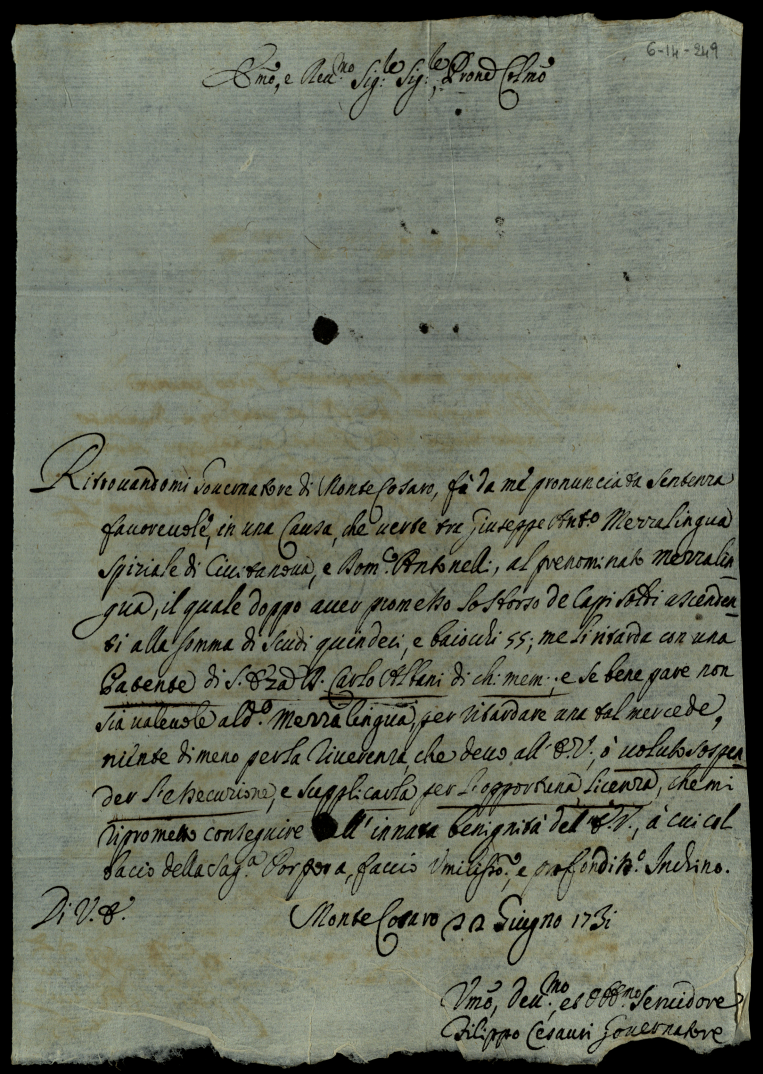 6-14-249
Emo, e Reu.mo Sig:le Sig:le, Prone Colmo
Ritrouandomi Gouernatore di Monte Cosaro, fù da mè pronunciata Sentenza
fauoreuole, in una Causa, che uerte tra Giuseppe Ant.o Merralingua
Spiziale di Ciuitanoua, e Dom.co Antonelli, al prenominato Merralin=
gua, il quale doppo auer promesso lo sborso de Capi soldi ascenden=
ti alla somma di Scudi quindeci, e baiocchi 55; me li ritarda con una
Patente di S. Carlo Albani di ch: mem:, e se bene pare non
sia ualeuole al d.o Merralingua, per ritardare una tal mercede,
niente di meno per la riuerenza, che deuo all' E.V., ò uoluto sospen=
der l'essecuzione, e supplicarla per l'opportuna licenza, che mi
riprometto conseguire dall' innata benignità dell' E.V., à cui col
bacio della Sag.a Porpora, faccio Vmilissmo, e profondissmo Inchino.
Di V. E.
Monte Cosaro 22 Giugno 1731
Vmo, deu.mo, et Obb.mo Seruidore
Filippo Cesauri Gouernatore